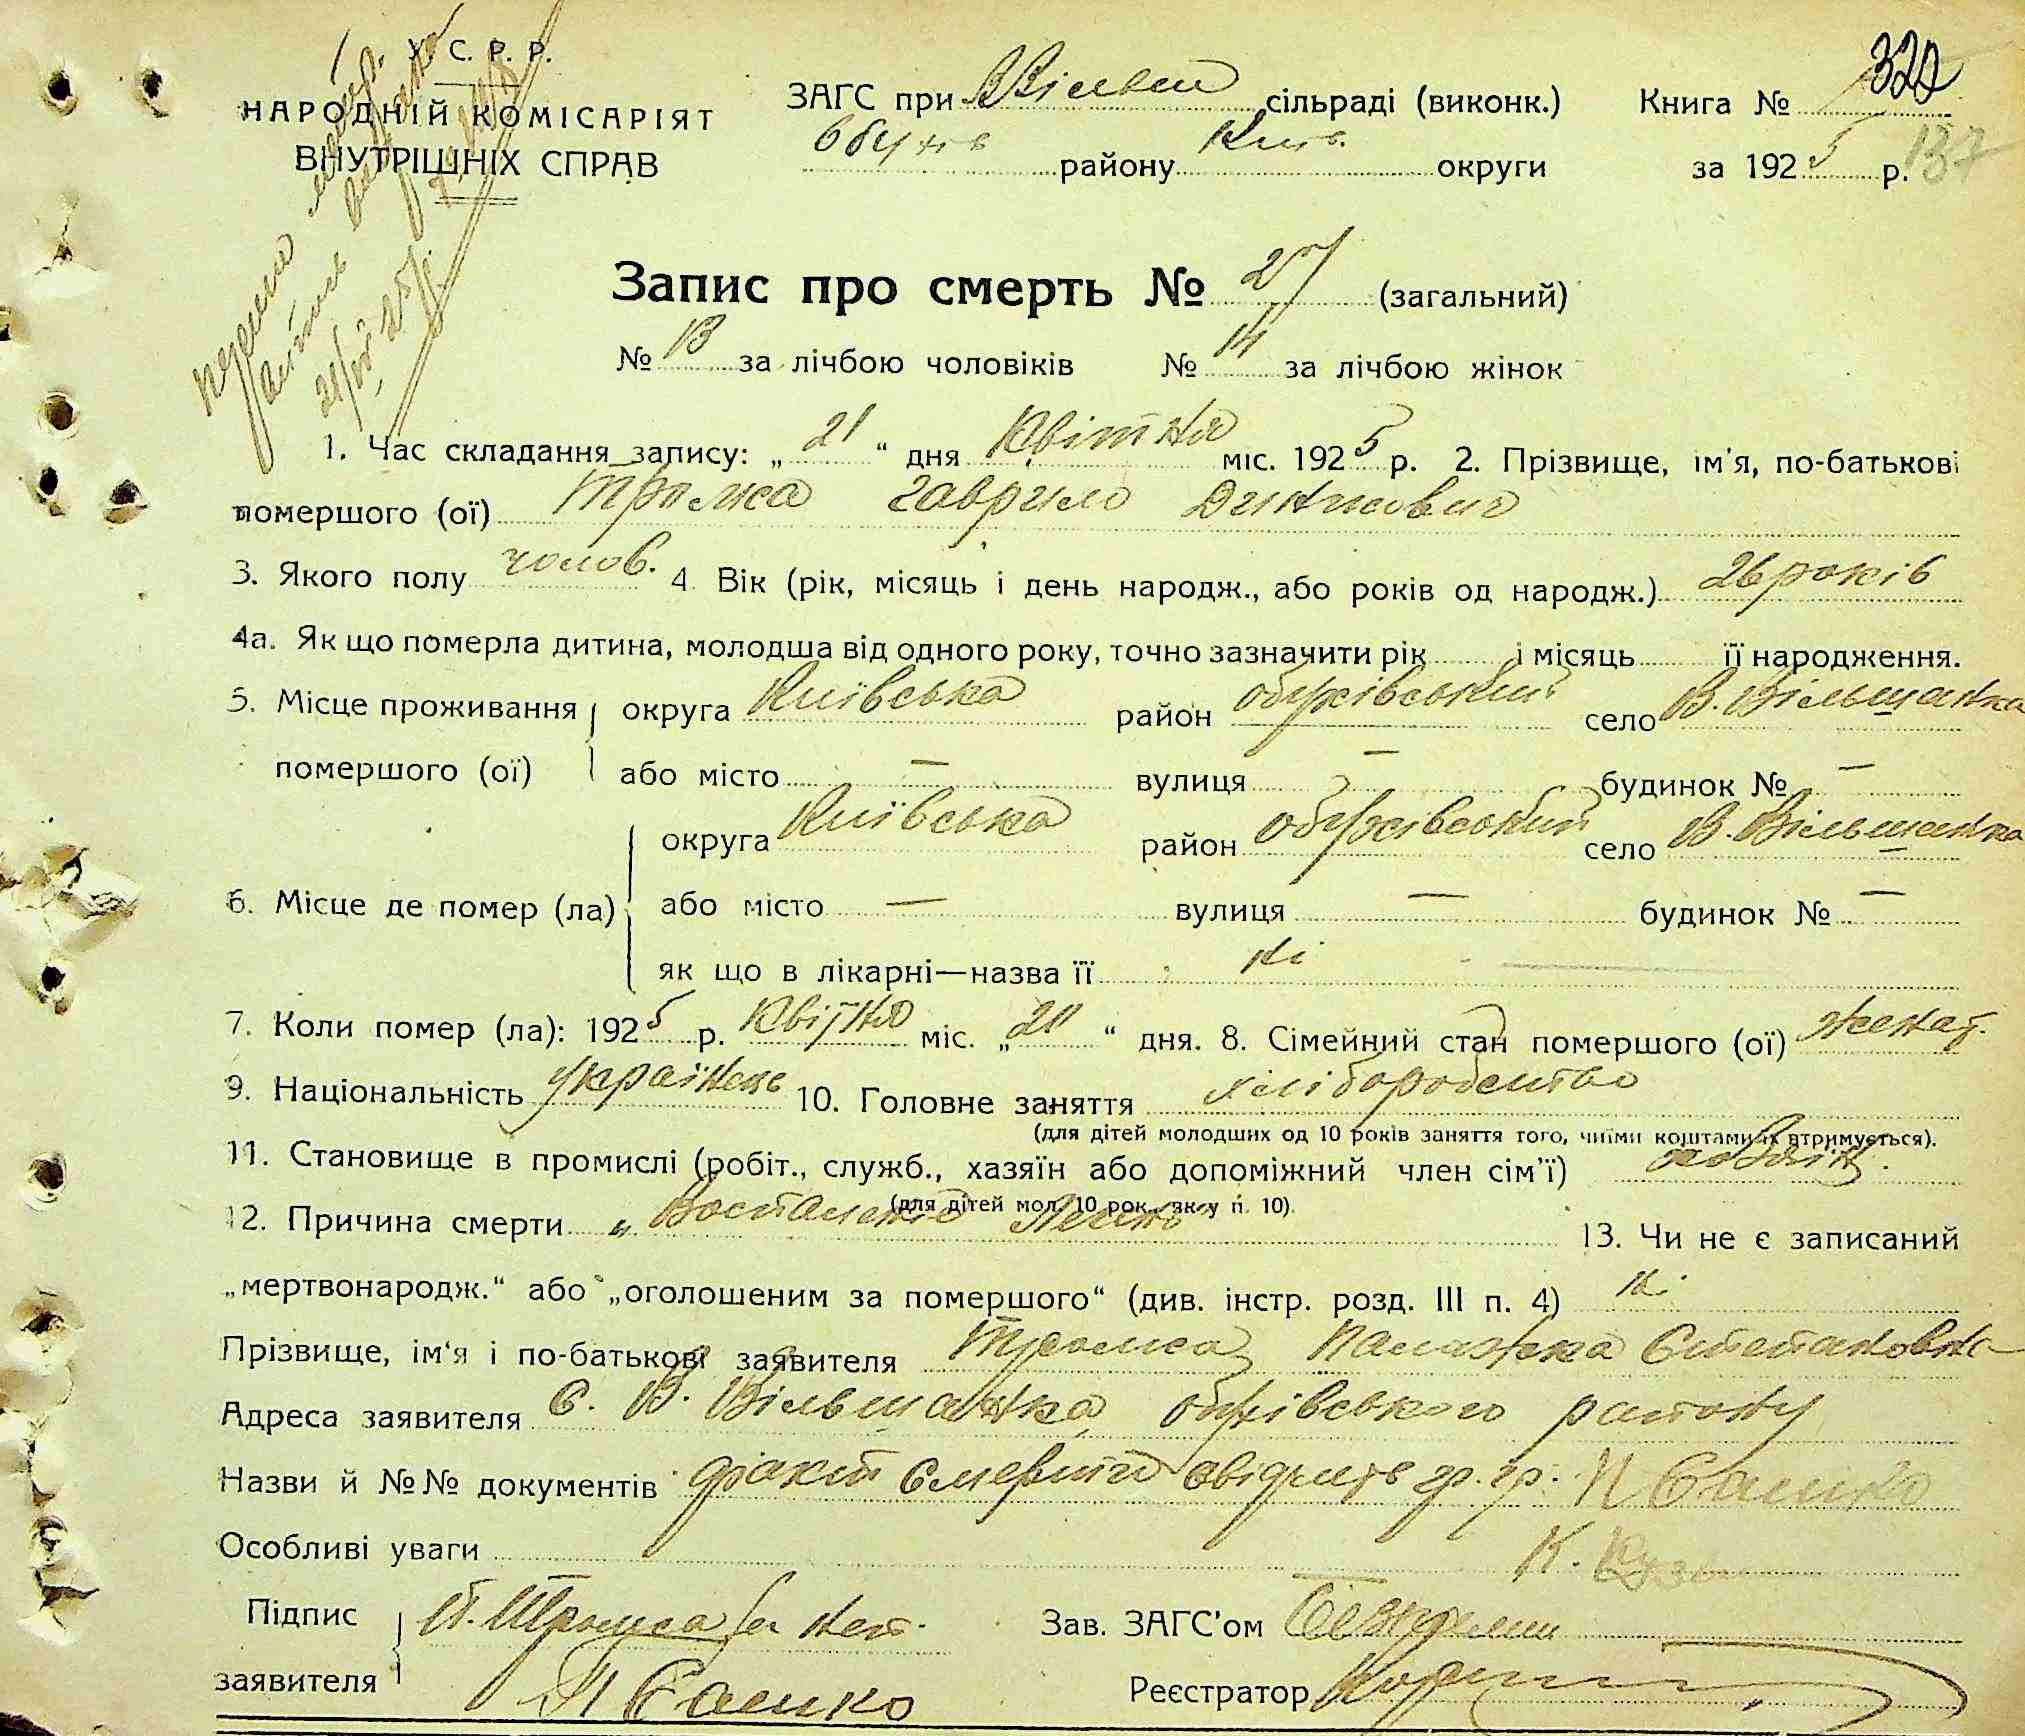 У. С. Р. Р.
НАРОДНІЙ КОМІСАРІЯТ
ВНУТРІШНІХ СПРАВ
ЗАГС при В Вільш сільраді (виконк.)
Обухів району Київ. округи
Книга № 320
за 1925 р. 137
Запис про смерть № 27 (загальний)
№ 13 за лічбою чоловіків № 14 за лічбою жінок
1. Час складання запису: „21“ дня Квітня міс. 1925 р. 2. Прізвище, ім'я, по-батькові
помершого (ої) Гаврило
3. Якого полу чолов. 4 Вік (рік, місяць і день народж., або років од народж.) 26 років
4а. Як що померла дитина, молодша від одного року, точно зазначити рік і місяць її народження.
5. Місце проживання округа Київська район обухівський село В. Вільшанка
помершого (ої) або місто — вулиця — будинок № —
6. Місце де помер (ла) округа Київська район обухівський село В. Вільшанка
або місто — вулиця — будинок № —
як що в лікарні—назва її ні
7. Коли помер (ла): 1925 р. Квітня міс. „20“ дня. 8. Сімейний стан помершого (ої) женат.
9. Національність українець 10. Головне заняття хліборобство
(для дітей молодших од 10 років заняття того, чиїми коштами їх втримується).
11. Становище в промислі (робіт., служб., хазяїн або допоміжний член сім'ї) хазяїн.
(для дітей мол. 10 рок., як у п. 10).
12. Причина смерти „Воспаление
13. Чи не є записаний
„мертвонародж.“ або „оголошеним за помершого“ (див. інстр. розд. III п. 4) ні
Прізвище, ім'я і по-батькові заявителя Палажка Степановна
Адреса заявителя С. В. Вільшанка обухівського району
Назви й №№ документів факт смерти свідчить гр. гр. П Сашко
Особливі уваги К.
Підпис заявителя П. за неп.
П Сашко
Зав. ЗАГС'ом
Реєстратор